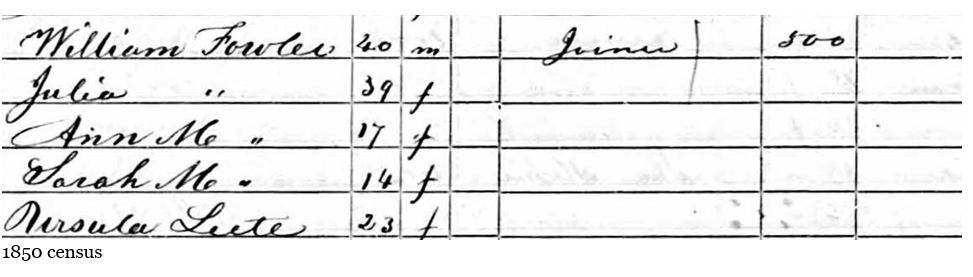 William Fowler 40 m Joiner 500
Julia " 39 f
Ann M " 17 f
Sarah M " 14 f
Ursula Leete 23 f
1850 census